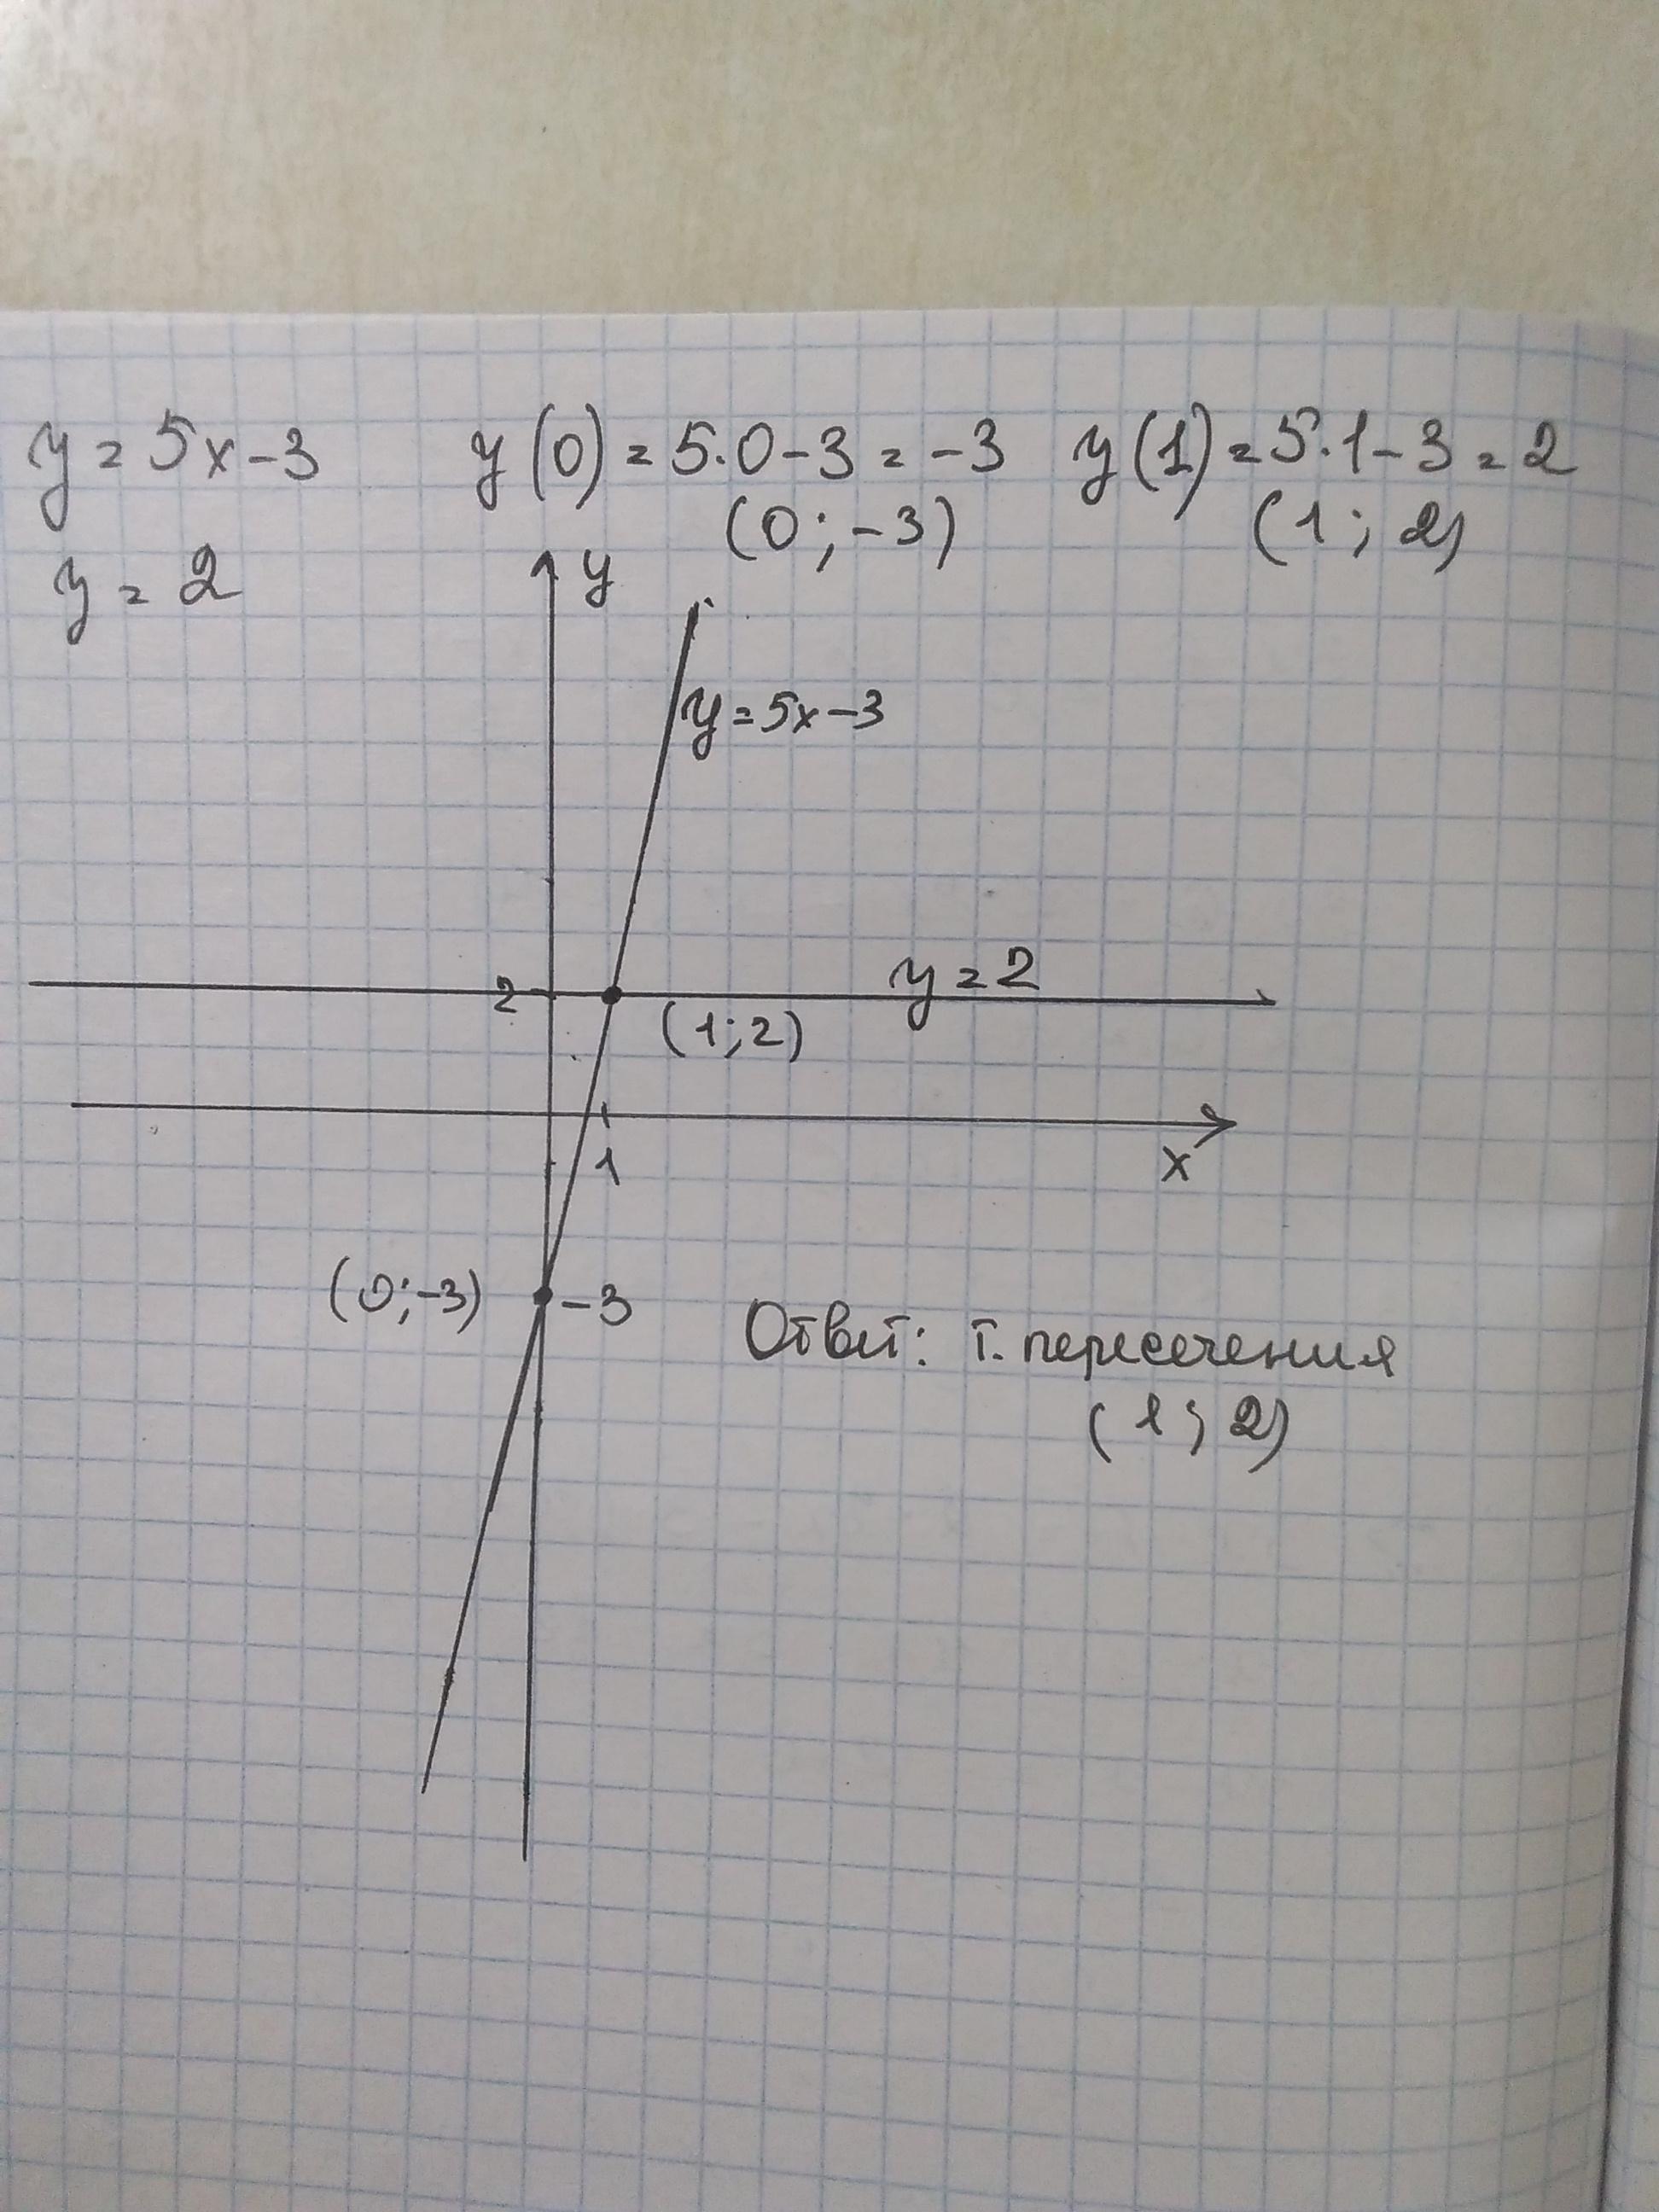 y = 5x - 3 y(0) = 5·0 - 3 = -3 y(1) = 5·1 - 3 = 2
(0; -3) (1; 2)
y = 2
y
y = 5x - 3
y = 2
2
(1; 2)
1
x
(0; -3) -3
Ответ: т. пересечения
(1; 2)